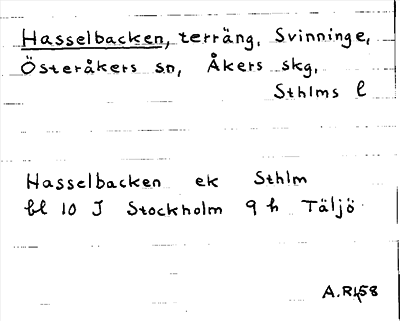 Hasselbacken, terräng, Svinninge,
Österåkers sn, Åkers skg,
Sthlms l
Hasselbacken ek Sthlm
bl 10 J Stockholm 9 h Täljö
A.R. 58